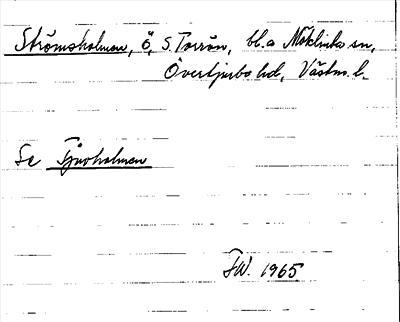 Strömsholmen, ö, S. Torrön, bl.a Möklinta sn,
Övertjurbo hd, Västm. l.
Se Tjuvholmen
FW. 1965